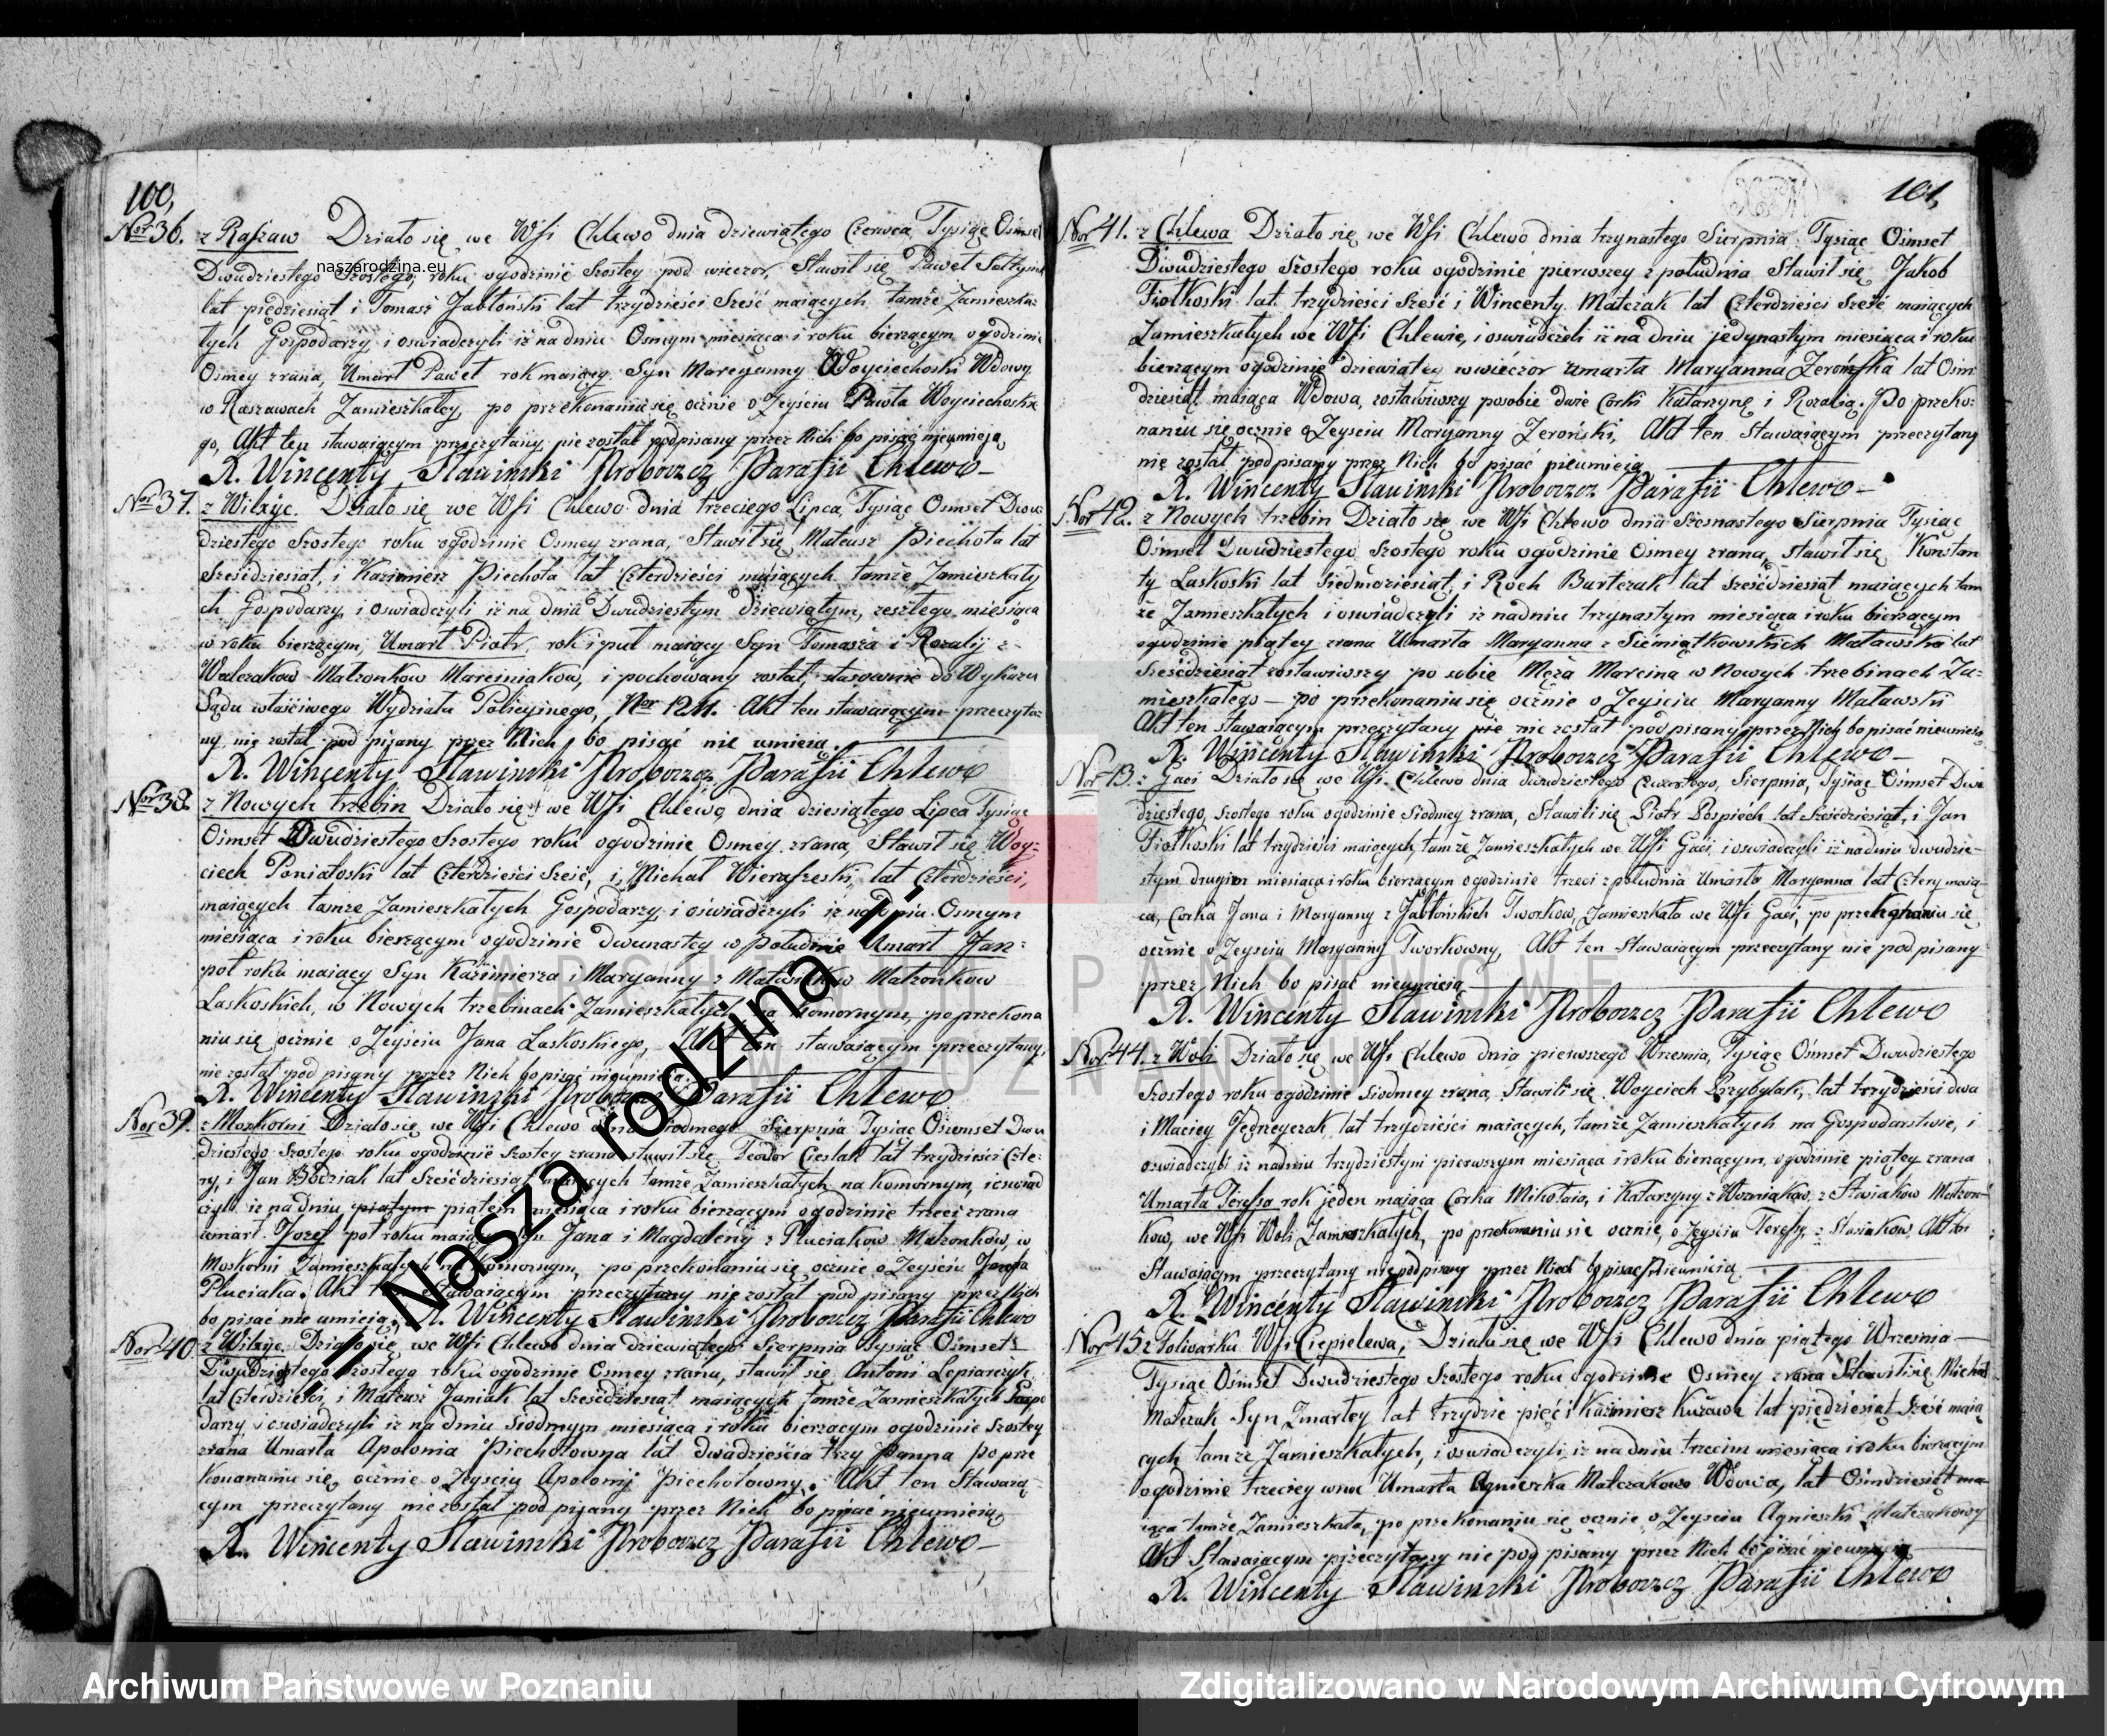 100,
Nor 36. z Raszaw Działo się we Wsi Chlewo dnia dziewiątego Czerwca Tysiąc Ośmset
Dwudziestego Szostego, roku ogodzinie Szostey pod wieczor, Stawił się Paweł Sołtysia
lat piędziesiąt i Tomasz Jabłoński lat trzydzieści Sześć maiących tamże Zamieszka=
łych Gospodarzy i oswiadczyli iż na dniu Osmym miesiąca i roku bierzącym ogodzinie
Osmey zrana, Umarł Paweł rok maiący Syn Maryanny Woyciechoski Wdowy
w Raszawach Zamieszkałey, po przekonaniu się ocznie o Zeyściu Pawła Woyciechoskie
go, Akt ten stawaiącym przeczytany nie został podpisany przez Nich bo pisać nieumieją
X. Wincenty Sławinski Proboszcz Parafii Chlewo
Nor 37. z Wilczyc. Działo się we Wsi Chlewo dnia trzeciego Lipca Tysiąc Ośmset Dwu
dziestego Szostego roku ogodzinie Osmey zrana, Stawił się Mateusz Piechota lat
Sześćdziesiąt, i Kazimierz Piechota lat Czterdzieści maiących tamże Zamieszkały
ch Gospodarzy, i oswiadczyli iż na dniu Dwudziestym dziewiątym, zeszłego miesiąca
w roku bierzącym, Umarł Piotr, rok i puł maiący Syn Tomasza i Rozalij z
Walczakow Małzonkow Marciniakow, i pochowany został, stosownie do Wykazu
Sądu właściwego Wydziału Policyinego, Nor 1211. Akt ten stawaiącym przeczyta=
ny nie został pod pisany przez Nich, bo pisać nie umieią.
X. Wincenty Sławinski Proboszcz Parafii Chlewo
Nor 38. z Nowych trzebin Działo się we Wsi Chlewo dnia dziesiątego Lipca Tysiąc
Ośmset Dwudziestego Szostego roku ogodzinie Osmey zrana, Stawił się Woy=
ciech Poniatoski lat Czterdzieści Sześć, i Michał Wieraszeski lat Czterdzieści,
maiących tamze Zamieszkałych Gospodarzy i oświadczyli iż na dniu Osmym
miesiąca i roku bierzącym ogodzinie dwunastey w południe Umarł Jan
poł roku maiący Syn Kazimierza i Maryanny z Małzonkow
Laskoskich, w Nowych trzebinach Zamieszkałych na Komornym, po przekona
niu się ocznie o Zeyściu Jana Laskoskiego, Akt ten stawaiącym przeczytany,
nie został pod pisany przez Nich bo pisać nieumieią.
X. Wincenty Sławinski Proboszcz Parafii Chlewo
Nor 39. z Moskorni Działo się we Wsi Chlewo dnia Siodmego Sierpnia Tysiąc Osiemset Dwu
dziestego Szostego roku ogodzinie Szostey zrana stawił się Teodor Cieslak lat trzydzieści Czte=
ry, i Jan lat Sześćdziesiąt maiących tamże Zamieszkałych na komornym, i oswiad
czyli iż na dniu piątym piątem miesiąca i roku bierzącym ogodzinie trzeci zrana
umarł Jozef poł roku maiący Syn Jana i Magdaleny z Pluciakow Małzonkow, w
Moskorni Zamieszkałych na komornym, po przekonaniu się ocznie o Zeyściu Jozefa
Pluciaka. Akt ten stawaiącym przeczytany nie został pod pisany przez Nich
bo pisać nie umieią. X. Wincenty Sławinski Proboszcz Parafii Chlewo
Nor 40. z Wilzyc Działo się we Wsi Chlewo dnia dziewiątego Sierpnia Tysiąc Ośmset
Dwudziestego Szostego roku ogodzinie Osmey zrana, stawił się Antoni Lepiarczyk
lat Czterdzieści, i Mateusz Janiak lat Sześćdziesiąt maiących tamże Zamieszkałych Gospo
darzy i oswiadczyli iż na dniu siodmym miesiąca i roku bierzącym ogodzinie Szostey
zrana Umarła Apolonia Piechotowna lat dwadzieścia trzy Panna po prze
konaniu się ocznie o Zeyściu Apolonij Piechotowny. Akt ten Stawaią=
cym przeczytany nie został pod pisany przez Nich bo pisać nieumieią
X. Wincenty Sławinski Proboszcz Parafii Chlewo
101,
Nor 41. z Chlewa Działo się we Wsi Chlewo dnia trzynastego Sierpnia Tysiąc Ośmset
Dwudziestego Szostego roku ogodzinie pierwszey z południa Stawił się Jakob
Fiołkoski lat trzydzieści sześć i Wincenty Matczak lat Czterdzieści Sześć maiących
Zamieszkałych we Wsi Chlewie, i oswiadczeli iż na dniu jedynastym miesiąca i roku
bierzącym ogodzinie dziewiątey wwieczor umarła Maryanna Zeronska lat Osm
dziesiąt maiąca Wdowa, zostawiwszy posobie dwie Corki Katarzynę i Rozalią. Po przeko=
naniu się ocznie o Zeysciu Maryanny Zeroński, Akt ten Stawaiącym przeczytany
nie został podpisany przez Nich bo pisać nieumieią
X. Wincenty Sławinski Proboszcz Parafii Chlewo
Nor 42. z Nowych trzebin Działo się we Wsi Chlewo dnia Szesnastego Sierpnia Tysiąc
Ośmset Dwudziestego Szostego roku ogodzinie Osmey zrana, stawił się Konstan
ty Laskoski lat siedmdziesiąt, i Roch Bartczak lat Sześćdziesiąt maiących tam
ze Zamieszkałych i oswiadczyli iz nadniu trzynastym miesiąca i roku bierzącym
ogodzinie piątey zrana Umarła Maryanna z Siemiątkowskich Matawska lat
Sześćdziesiąt zostawiwszy po sobie Męza Marcina w Nowych trzebinach Za=
mieszkałego — po przekonaniu się ocznie o Zeysciu Maryanny Matawski
Akt ten stawaiącym przeczytany nie został pod pisany przez Nich bo pisać nieumieią
X. Wincenty Sławinski Proboszcz Parafii Chlewo
Nor 43. z Gaci Działo się we Wsi Chlewo dnia dwudziestego Czwartego, Sierpnia, Tysiąc Ośmset Dwu
dziestego, szostego roku ogodzinie Siodmey zrana, Stawili się Piotr Pospiech lat Sześćdziesiąt, i Jan
Fiołkoski lat trzydzieści maiących, tamże Zamieszkałych we Wsi Gaci, i oswiadczyli iż na dniu dwudzie=
stym drugim miesiąca i roku bierzącym ogodzinie trzeci z południa Umarła Maryanna lat Cztery maią=
ca, Corka Jana i Maryanny z Jabłońskich Tworkow, Zamieszkała we Wsi Gaci, po przekonaniu się
ocznie o Zeysciu Maryanny Tworkowny, Akt ten Stawaiącym przeczytany nie pod pisany
przez Nich bo pisać nieumieią
X. Wincenty Sławinski Proboszcz Parafii Chlewo
Nor 44. z Woli Działo się we Wsi Chlewo dnia pierwszego Wrzesnia, Tysiąc Ośmset Dwudziestego
Szostego roku ogodzinie siodmey zrana, Stawili się Woyciech Przybylak, lat trzydzieści dwa
i Maciey Jędrzeyczak, lat trzydzieści maiących, tamże Zamieszkałych na Gospodarstwie, i
oswiadczyli iż nadniu trzydziestym pierwszym miesiąca i roku bierzącym, ogodzinie piątey zrana
Umarła Teressa rok jeden maiąca Corka Mikołaia, i Katarzyny z Wozniakow, z Stasiakow Małzon=
kow, we Wsi Woli Zamieszkałych, po przekonaniu się ocznie o Zeyściu Teressy, z Stasiakow, Akt ten
Stawaiącym przeczytany nie podpisany przez Nich bo pisać nieumieią
X. Wincenty Sławinski Proboszcz Parafii Chlewo
Nor 45. z Folwarku Wsi Ciepielewa, Działo się we Wsi Chlewo dnia piątego Wrzesnia
Tysiąc Ośmset Dwudziestego Szostego roku ogodzinie Osmey zrana Stawili się Michał
Matczak Syn Zmarłey lat trzydzie pięć i Kazimierz Kuzawa lat piędziesiąt Sześć maią
cych tamze Zamieszkałych, i oswiadczyli iz na dniu trzecim miesiąca i roku bierzącym
ogodzinie trzeciey wnoc Umarła Agnieszka Matczakowa Wdowa, lat Osmdziesiąt ma=
iąca tamże Zamieszkała, po przekonaniu się ocznie o Zeysciu Agnieszki Matczakowy
Akt Stawaiącym przeczytany nie pod pisany przez Nich bo pisać nieumieią
X. Wincenty Sławinski Proboszcz Parafii Chlewo
naszarodzina.eu
"Nasza rodzina II"
ARCHIWUM PAŃSTWOWE
W POZNANIU
Archiwum Państwowe w Poznaniu
Zdigitalizowano w Narodowym Archiwum Cyfrowym